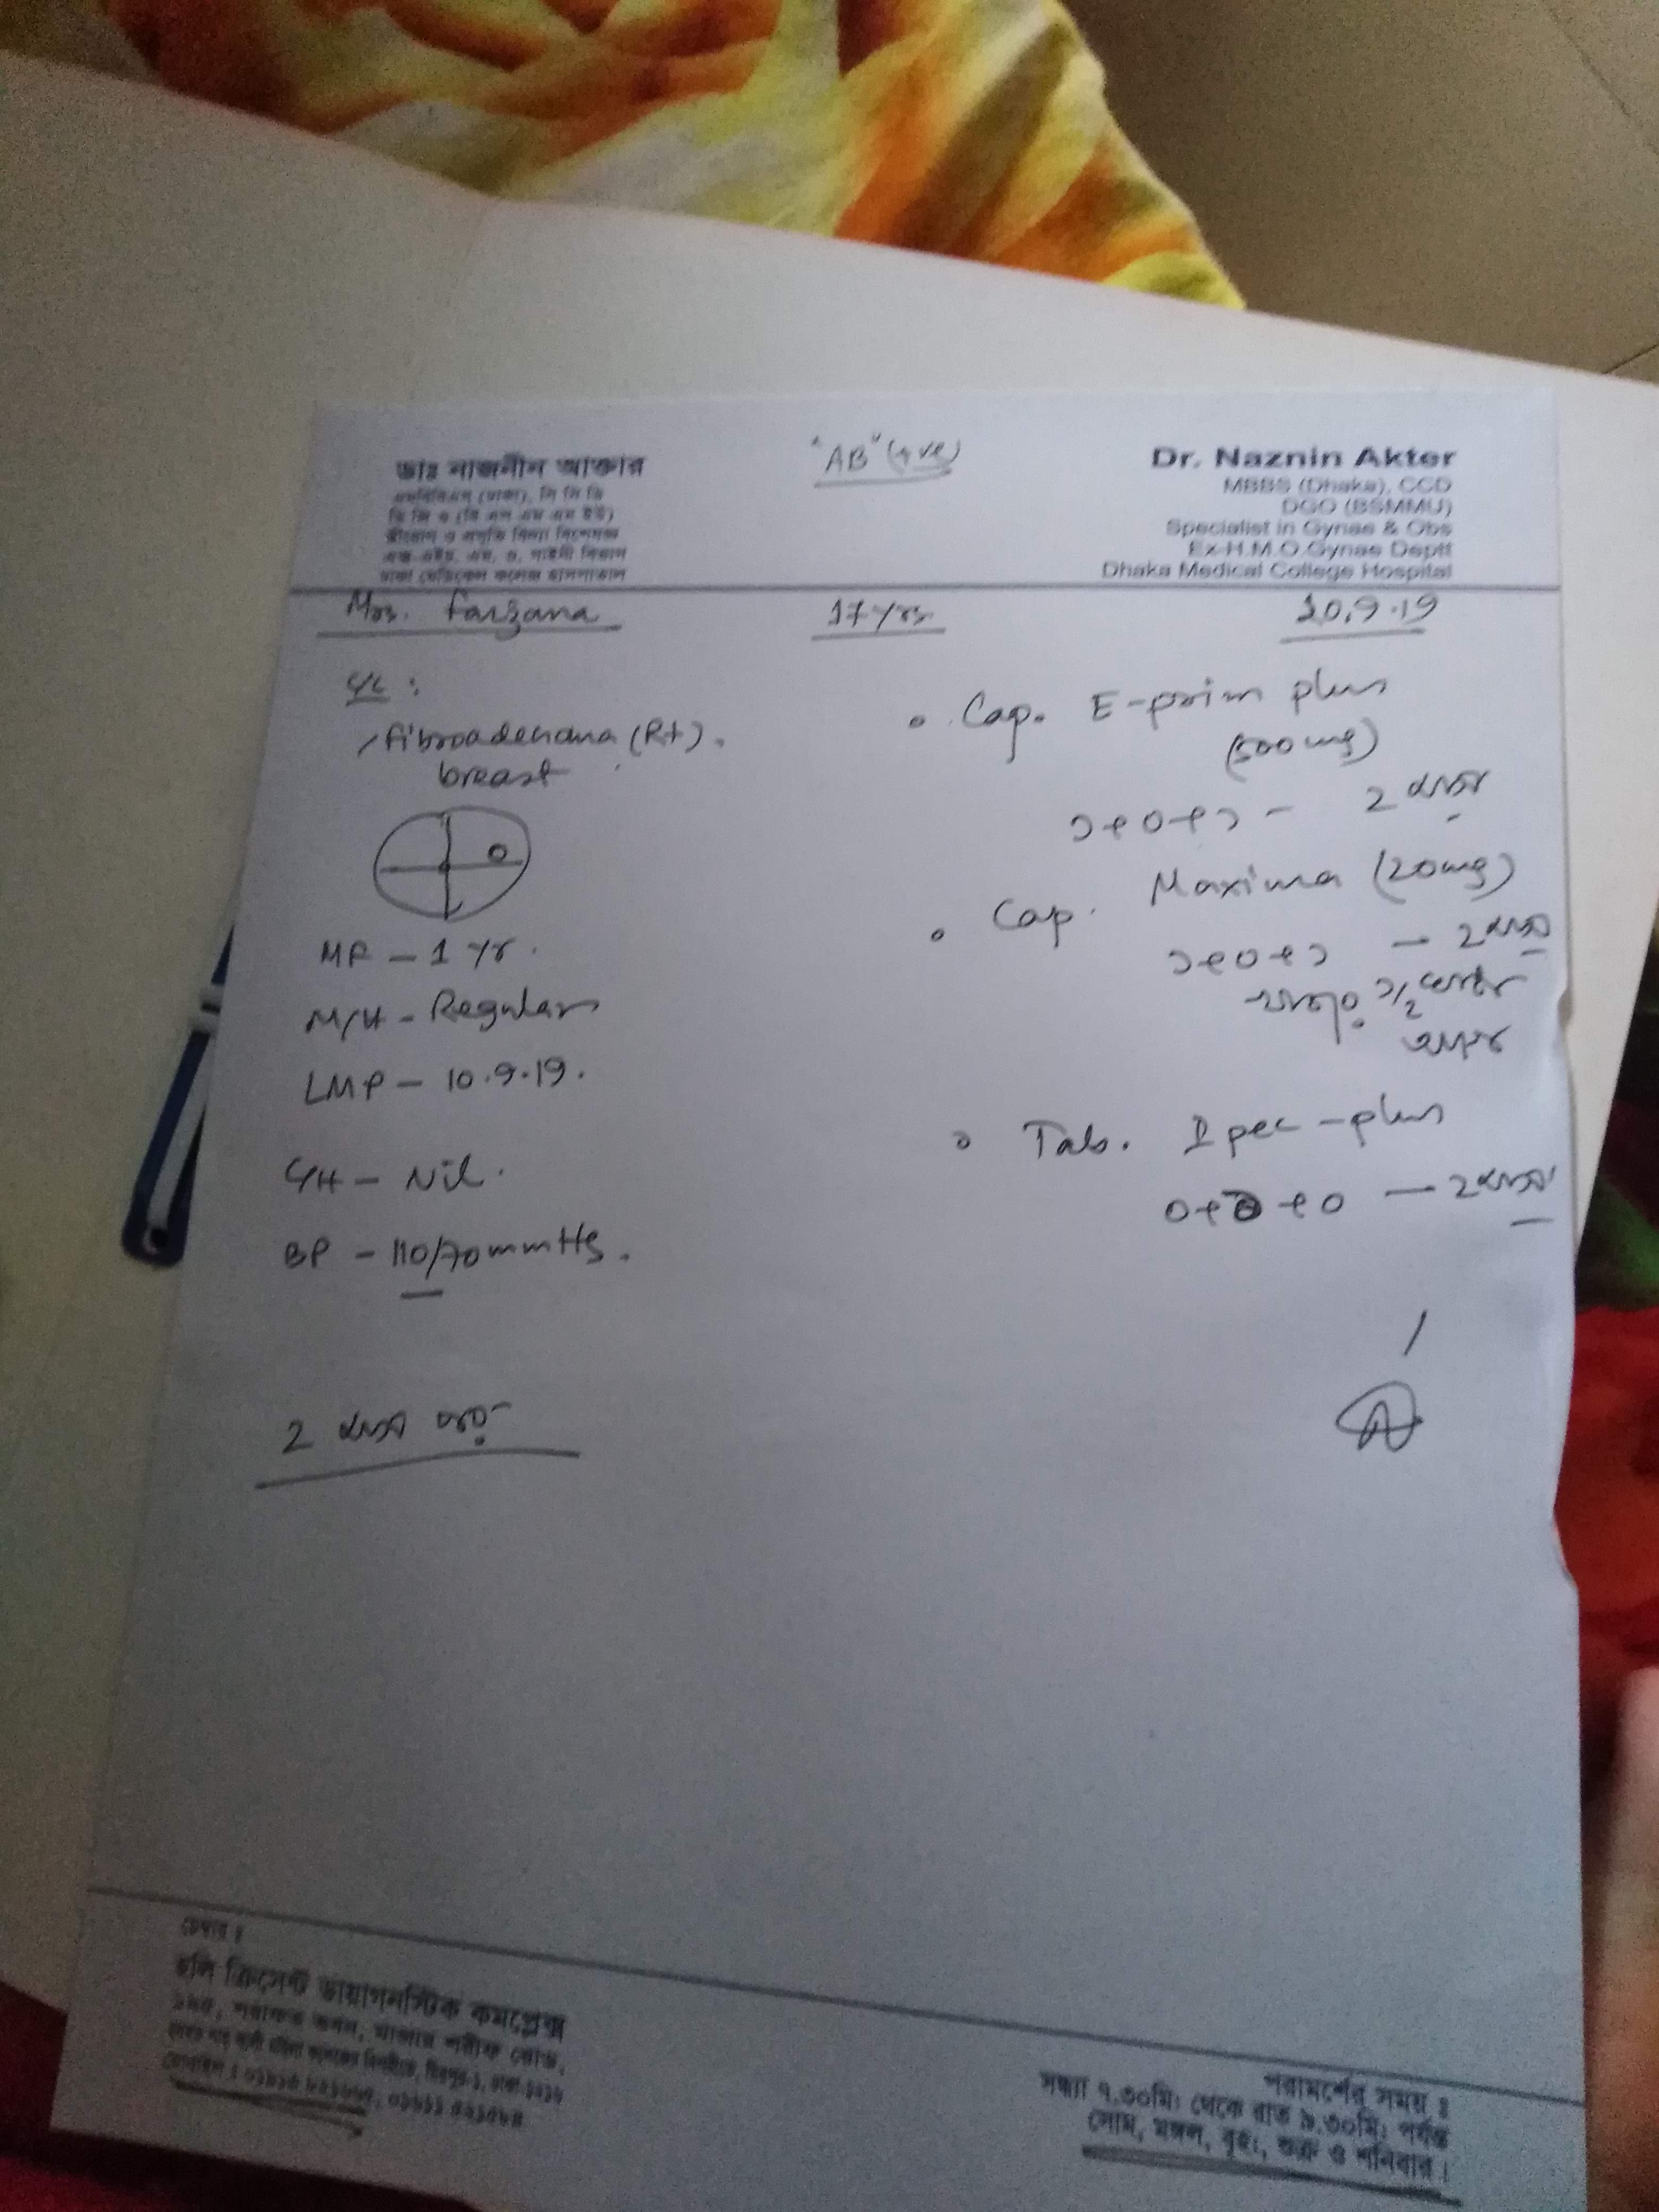 ডাঃ নাজনীন আক্তার
এমবিবিএস (ঢাকা), সি সি ডি
ডি জি ও (বি এস এম এম ইউ)
স্ত্রীরোগ ও প্রসূতি বিদ্যা বিশেষজ্ঞ
এক্স-এইচ, এম, ও, গাইনী বিভাগ
ঢাকা মেডিকেল কলেজ হাসপাতাল
"AB" (+ve)
Dr. Naznin Akter
MBBS (Dhaka), CCD
DGO (BSMMU)
Specialist in Gynae & Obs
Ex-H.M.O.Gynae Deptt
Dhaka Medical College Hospital
Mrs. Farzana 17 yrs 10.9.19
C/C :
Fibroadenoma (Rt).
breast
MF – 1 yr.
M/H – Regular
LMP – 10.9.19.
C/H – Nil.
BP – 110/70 mmHg.
2 মাস পর
Cap. E-prim plus
(500mg)
১+০+১ – 2 মাস
Cap. Maxima (20mg)
১+০+১ – 2 মাস
খাওয়ার ১/২ ঘন্টা
আগে
Tab. Ipec-plus
০+০+০ – 2 মাস
চেম্বার ঃ
হলি ক্রিসেন্ট ডায়াগনস্টিক কমপ্লেক্স
পরামর্শের সময় ঃ
সন্ধ্যা ৭.৩০মিঃ থেকে রাত ৯.৩০মিঃ পর্যন্ত
সোম, মঙ্গল, বৃহঃ, শুক্র ও শনিবার।